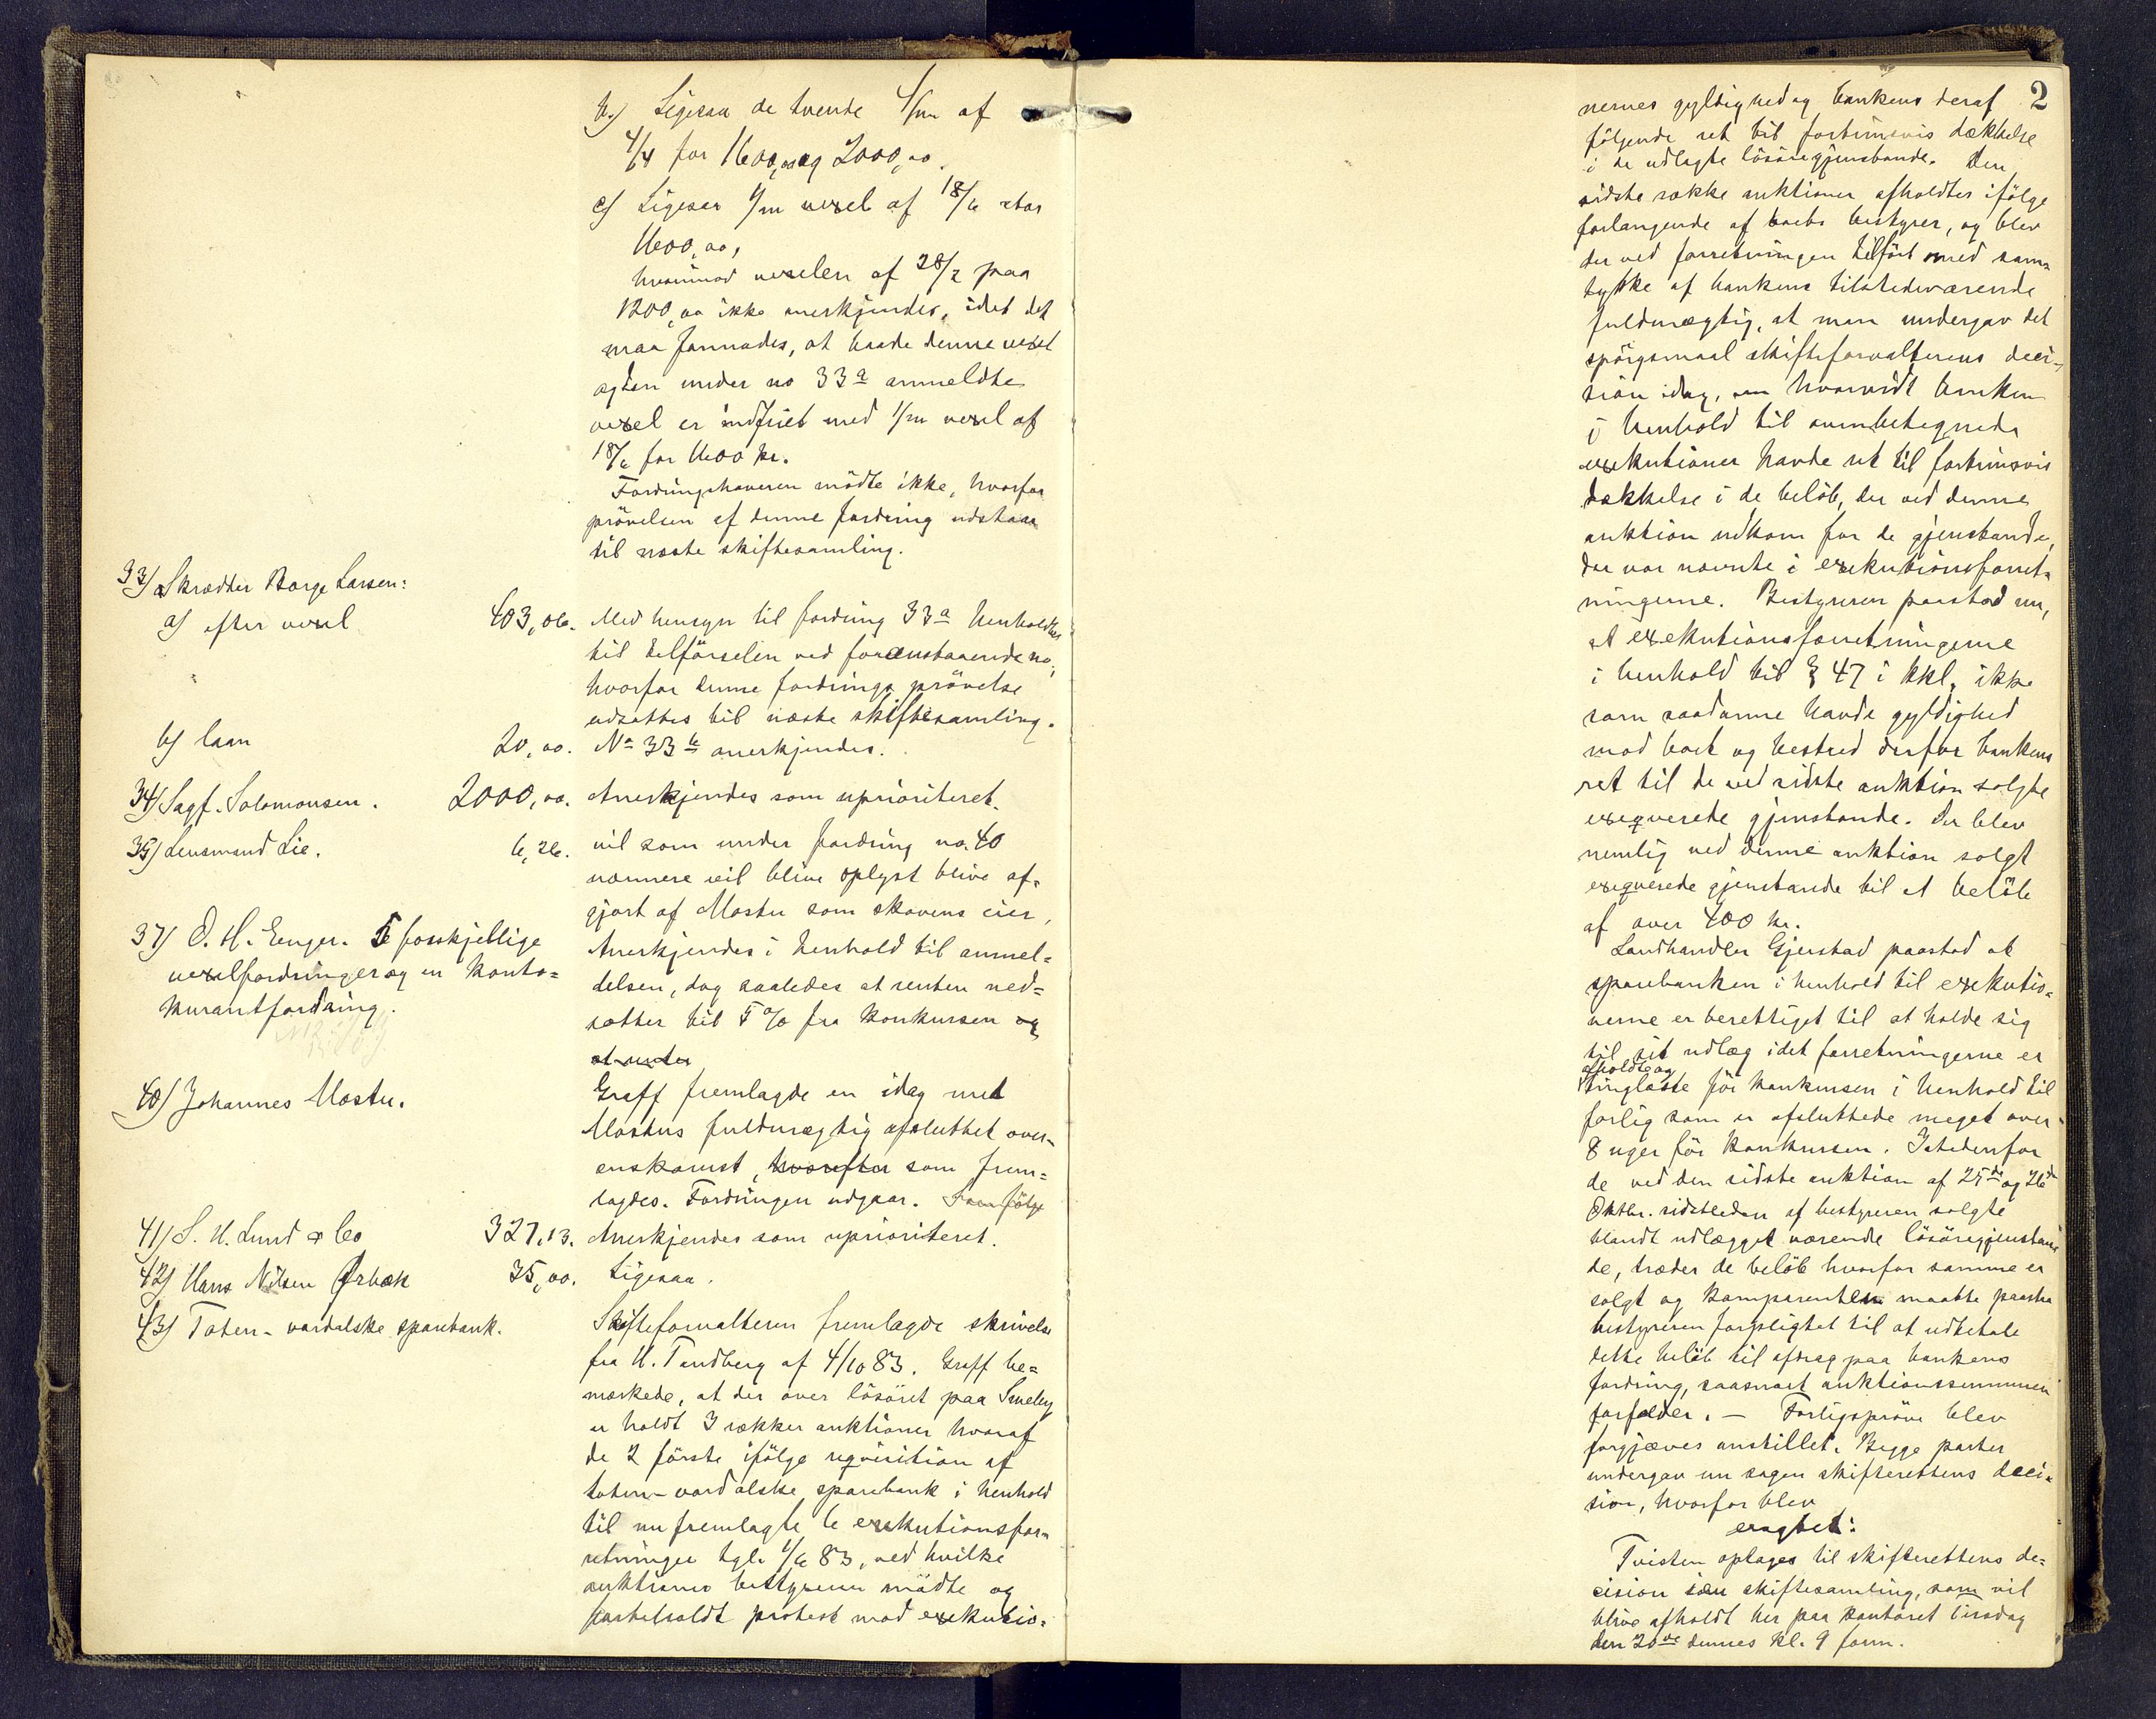 b) Ligesaa de tvende 4/m af
4/4 for 1600,00 og 2000,00.
c) Ligesaa 4/m vexel af 18/6 stor
1600,00,
hvorimod vexelen af 28/2 paa
1200,00 ikke anerkjendes, idet det
maa formodes, at baade denne vexel
og den under no 33a anmeldte
vexel er indfriet med 4/m vexel af
18/6 for 1600 kr.
Fordringshaveren mödte ikke, hvorfor
prövelsen af denne fordring udstaar
til næste skiftesamling.
33) Skrædder Borge Larsen:
a) efter vexel 403,06. Med hensyn til fordring 33a henholdtes
til tilförselen ved foranstaaende no,
hvorfor denne fordrings prövelse
udsattes til næste skiftesamling.
b) laan 20,00. No 33b anerkjendes.
34) Sagf. Solomonsen. 2000,00. Anerkjendes som uprioriteret.
35) Lensmand Lie. 6,26. vil som under fordring no. 40
nærmere vil blive oplyst blive af-
gjort af Mostu som skovens eier,
37) O. H. Enger. 5 forskjellige Anerkjendes i henhold til anmel=
vexelfordringer og en konto= delsen, dog saaledes at renten ned=
kurantfordring. sættes til 5 % fra konkursen og
at renter
40) Johannes Mostu. Graff fremlagde en idag med
Mostus fuldmægtig afsluttet over-
enskomst, hvorefter som frem=
lagdes. Fordringen udgaar.
41) S. H. Lund & Co 327,13. Anerkjendes som uprioriteret.
42) Hans Nilsen Örbæk 35,00. Ligesaa.
43) Toten-vardalske sparebank. Skifteforvalteren fremlagde skrivelse
fra H. Tandberg af 4/10 83. Graff be=
mærkede, at der over lösöret paa Smeby
er holdt 3 rækker auktioner hvoraf
de 2 förste ifölge reqvisition af
toten-vardalske sparebank i henhold
til nu fremlagte 6 exekutionsfor-
retninger tgl. 1/6 83, ved hvilke
auktioner bestyreren mödte og
forbeholdt protest mod exekutio-
2
nernes gyldighed og bankens deraf
fölgende ret til fortrinsvis dækkelse
i de udlagte lösöregjenstande. Den
sidste række auktioner afholdtes ifölge
forlangende af boets bestyrer, og blev
der ved forretningen tilfört med sam-
tykke af bankens tilstedeværende
fuldmægtig, at man undergav det
spörgsmaal skifteforvalterens deci-
sion idag, om hvorvidt banken
i henhold til ovenbetegnede
exekutioner havde ret til fortrinsvis
dækkelse i de belöb, der ved denne
auktion udkom for de gjenstande,
der var nævnte i exekutionsforret-
ningerne. Bestyreren paastod nu,
at exekutionsforretningerne
i henhold til § 47 i kkl. ikke
som saadanne havde gyldighed
mod boet og bestred derfor bankens
ret til de ved sidste auktion solgte
exeqverede gjenstande. Der blev
nemlig ved denne auktion solgt
exeqverede gjenstande til et belöb
af over 400 kr.
Landhandler Gjerstad paastod at
sparebanken i henhold til exekutio-
nerne er berettiget til at holde sig
til sit udlæg idet forretningerne er
afholdte og
tinglæste för konkursen i henhold til
forlig som er afsluttede meget over
8 uger för konkursen. Istedenfor
de ved den sidste auktion af 25de og 26de
Oktbr. sidstleden af bestyreren solgte
blandt udlægget værende lösöregjenstan-
de, træder de belöb hvorfor samme er
solgt og komparenten maatte paastaa
bestyreren forpligtet til at udbetale
dette belöb til afdrag paa bankens
fordring, saasnart auktionssummen
forfalder. — Forligspröve blev
forgjæves anstillet. Begge parter
undergav nu sagen skifterettens deci-
sion, hvorfor blev
eragtet:
Tvisten optages til skifterettens de=
cision i en skiftesamling, som vil
blive afholdt her paa kontoret Tirsdag
den 20de dennes kl. 9 form.